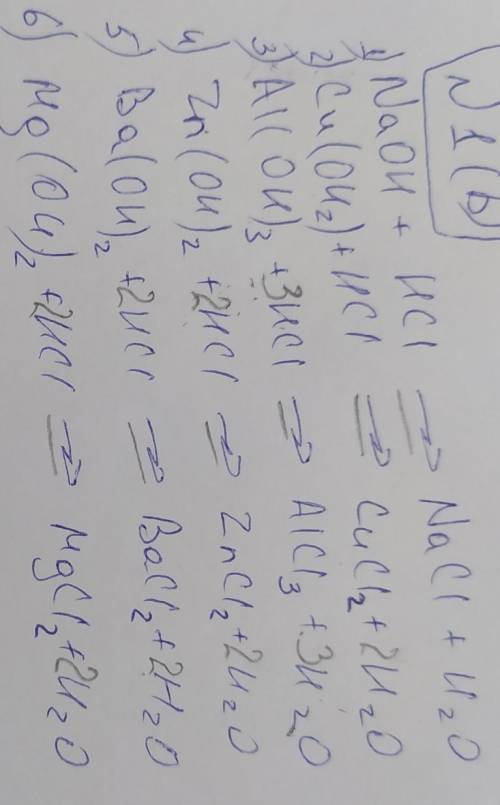 N1(b)
1) NaOH + HCl ⇒ NaCl + H₂O
2) Cu(OH₂) + HCl ⇒ CuCl₂ + 2H₂O
3) Al(OH)₃ + 3HCl ⇒ AlCl₃ + 3H₂O
4) Zn(OH)₂ + 2HCl ⇒ ZnCl₂ + 2H₂O
5) Ba(OH)₂ + 2HCl ⇒ BaCl₂ + 2H₂O
6) Mg(OH)₂ + 2HCl ⇒ MgCl₂ + 2H₂O